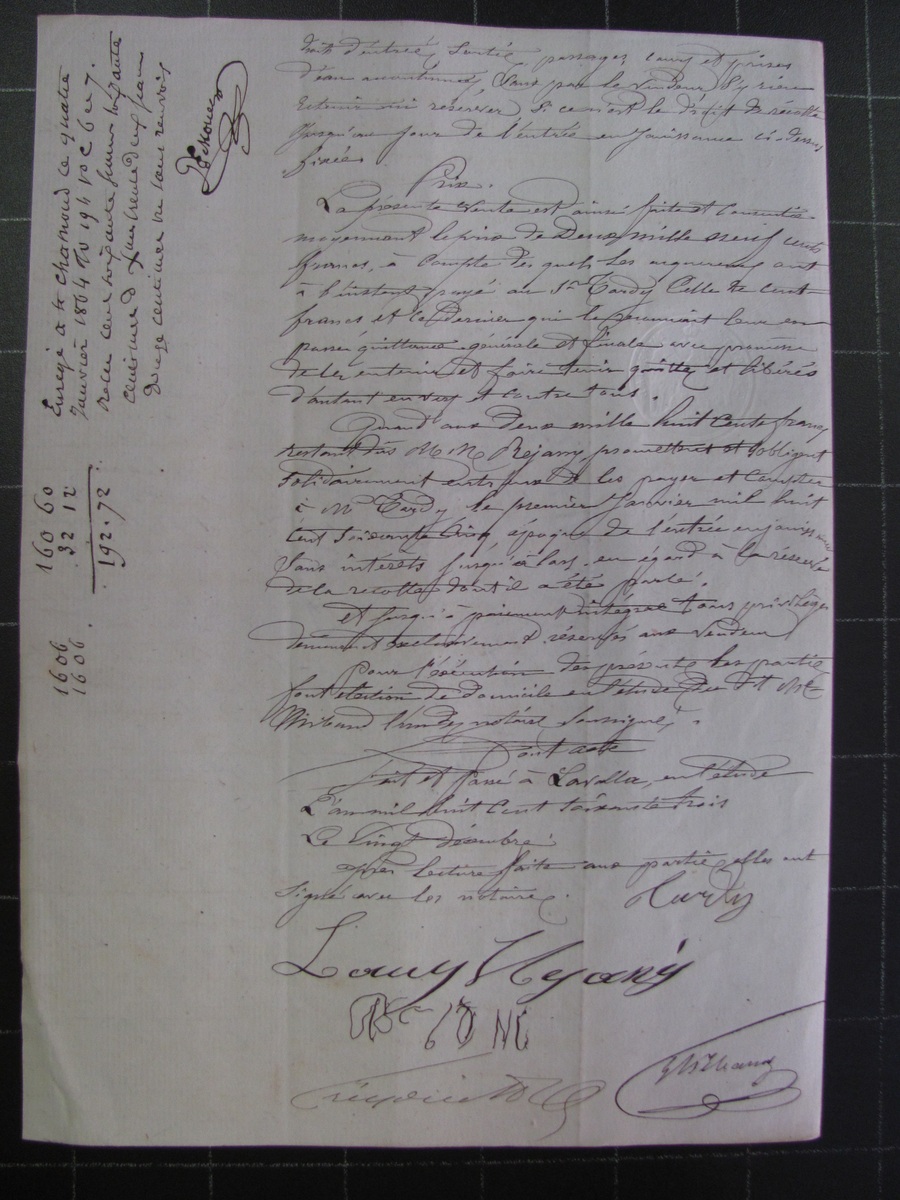 droits d'entrée, sortie, passages, cours et prises
d'eau accoutumés, sans par le vendeur s'y rien
retenir ni réserver, si ce n'est le droit de récolte
jusqu'au jour de l'entrée en jouissance ci-dessus
fixée.
Prix.
La présente vente est ainsi faite et consentie
moyennant le prix de Deux mille neuf cents
francs, à compte desquels les acquéreurs ont
à l'instant payé au Sr Tardy celle de cent
francs et ce dernier qui le reconnait leur en
passe quittance générale et finale avec promesse
de les en tenir et faire tenir quittes et libérés
d'autant envers et contre tous.
Quand aux Deux mille huit cents francs
restant dûs M M Réjany promettent et s'obligent
solidairement entr'eux de les payer et compter
à Mr Tardy le premier Janvier mil huit
cent soixante cinq, époque de l'entrée en jouissance
sans intérêts jusqu'alors, eu égard à la réserve
de la récolte dont il a été parlé.
Et jusqu'à paiement intégral tous privilèges
demeurent exclusivement réservés aux vendeur
Pour l'exécution des présentes les parties
font élection de domicile en l'étude du dit Me
notaires soussignés.
Dont acte
Fait et passé à Lavalla, en l'étude
L'an mil huit cent soixante trois
Le vingt décembre
Après lecture faite aux parties elles ont
signé avec les notaires.
Tardy
Louis Rejany
Enregé à St Chamond le quatre
Janvier 1864 fo 194 vo C 6 et 7.
Reçu cent soixante francs soixante
centimes Dixme trente deux francs
douze centimes
160 60
32 12
192.72
1606
1606